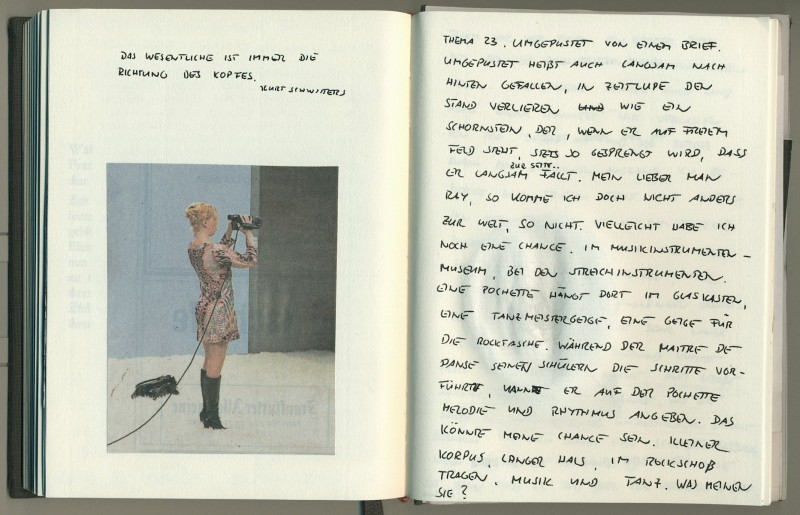 DAS WESENTLICHE IST IMMER DIE
RICHTUNG DES KOPFES.
KURT SCHWITTERS
Frankfurter Allgemeine
THEMA 23. UMGEPUSTET VON EINEM BRIEF.
UMGEPUSTET HEIßT AUCH LANGSAM NACH
HINTEN GEFALLEN, IN ZEITLUPE DEN
STAND VERLIEREN UND WIE EIN
SCHORNSTEIN, DER, WENN ER AUF FREIEM
FELD STEHT, STETS SO GESPRENGT WIRD, DASS
ZUR SEITE..
ER LANGSAM FÄLLT. MEIN LIEBER MAN
RAY, SO KOMME ICH DOCH NICHT ANDERS
ZUR WELT, SO NICHT. VIELLEICHT HABE ICH
NOCH EINE CHANCE. IM MUSIKINSTRUMENTEN-
MUSEUM, BEI DEN STREICHINSTRUMENTEN.
EINE POCHETTE HÄNGT DORT IM GLASKASTEN,
EINE TANZMEISTERGEIGE, EINE GEIGE FÜR
DIE ROCKTASCHE. WÄHREND DER MAITRE DE
DANSE SEINEN SCHÜLERN DIE SCHRITTE VOR-
FÜHRT, KANN ER AUF DER POCHETTE
MELODIE UND RHYTHMUS ANGEBEN. DAS
KÖNNTE MEINE CHANCE SEIN. KLEINER
KORPUS, LANGER HALS, IM ROCKSCHOß
TRAGEN. MUSIK UND TANZ. WAS MEINEN
SIE?